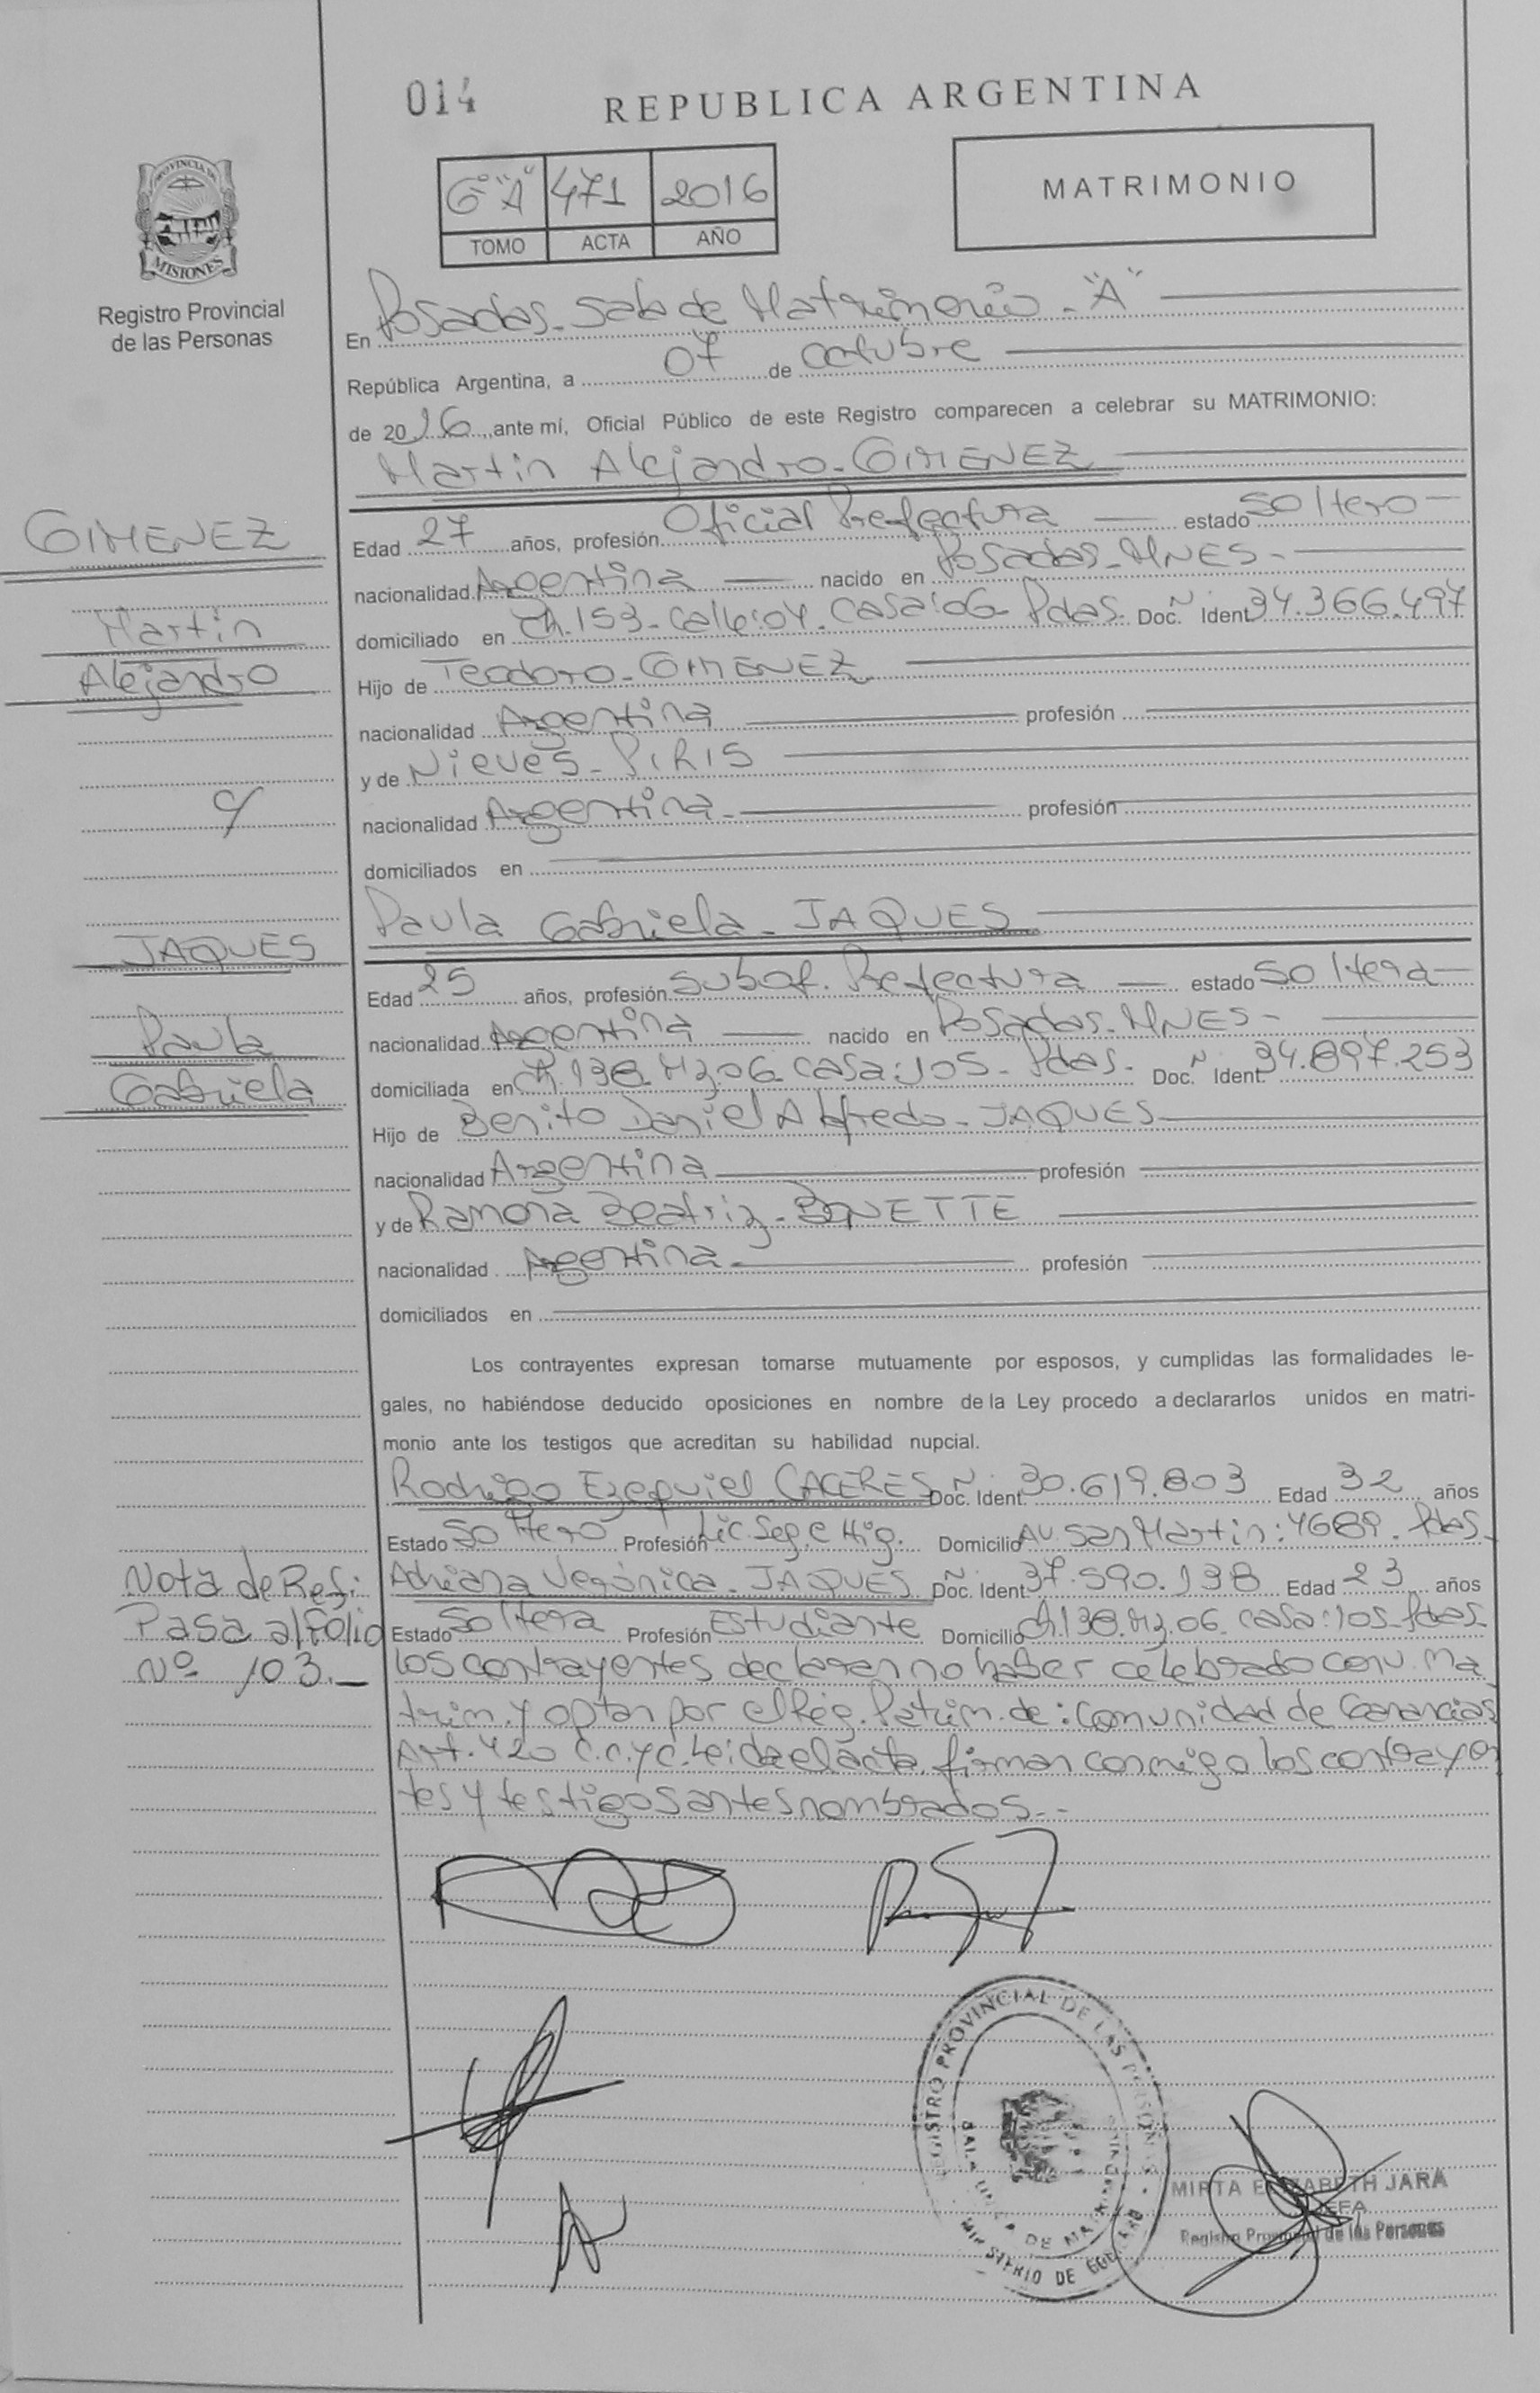 014
REPUBLICA ARGENTINA
PROVINCIA DE
MISIONES
Registro Provincial
de las Personas
6º "A" 471 2016
TOMO ACTA AÑO
MATRIMONIO
En Posadas - Sala de Matrimonio - "A"
República Argentina, a 07 de octubre
de 2016, ante mí, Oficial Público de este Registro comparecen a celebrar su MATRIMONIO:
Martin Alejandro - GIMENEZ
GIMENEZ
Martin
Alejandro
Edad 27 años, profesión Oficial Prefectura estado soltero
nacionalidad Argentina nacido en Posadas - MNES -
domiciliado en Ch. 153 - Calle: 04 - Casa: 06 - Pdas. Doc. Nº Ident. 34.366.497
Hijo de Teodoro - GIMENEZ
nacionalidad Argentina profesión
y de Nieves - PIRIS
c/
nacionalidad Argentina - profesión
domiciliados en
Paula Gabriela - JAQUES
JAQUES
Paula
Gabriela
Edad 25 años, profesión Subof. Prefectura estado soltera
nacionalidad Argentina nacido en Posadas - MNES -
domiciliada en Ch. 138 Mz. 06 Casa: 105 - Pdas. Doc. Nº Ident. 34.897.253
Hijo de Benito Daniel Alfredo - JAQUES
nacionalidad Argentina profesión
y de Ramona Beatriz - BONETTE
nacionalidad Argentina - profesión
domiciliados en
Los contrayentes expresan tomarse mutuamente por esposos, y cumplidas las formalidades le-
gales, no habiéndose deducido oposiciones en nombre de la Ley procedo a declararlos unidos en matri-
monio ante los testigos que acreditan su habilidad nupcial.
Rodrigo Ezequiel CACERES Doc. Nº Ident. 30.619.803 Edad 32 años
Estado soltero Profesión Lic. Seg. e Hig. Domicilio Av. San Martin: 4689. Pdas.
Adriana Verónica - JAQUES Doc. Nº Ident. 37.590.138 Edad 23 años
Estado soltera Profesión Estudiante Domicilio Ch. 138. Mz. 06 Casa: 105 - Pdas
Nota de Ref:
Pasa al folio
Nº 103.-
los contrayentes declaran no haber celebrado conv. ma
trim. y optan por el Rég. Patrim. de: Comunidad de Ganancias
Art. 420 C.C.yC. Leida el acta, firman conmigo los contrayen
tes y testigos antes nombrados.--
REGISTRO PROVINCIAL DE LAS PERSONAS
MINISTERIO DE GOBIERNO
MIRTA ELIZABETH JARA
JEFA
Registro Provincial de las Personas